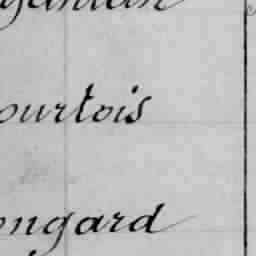 ourtois
ongard